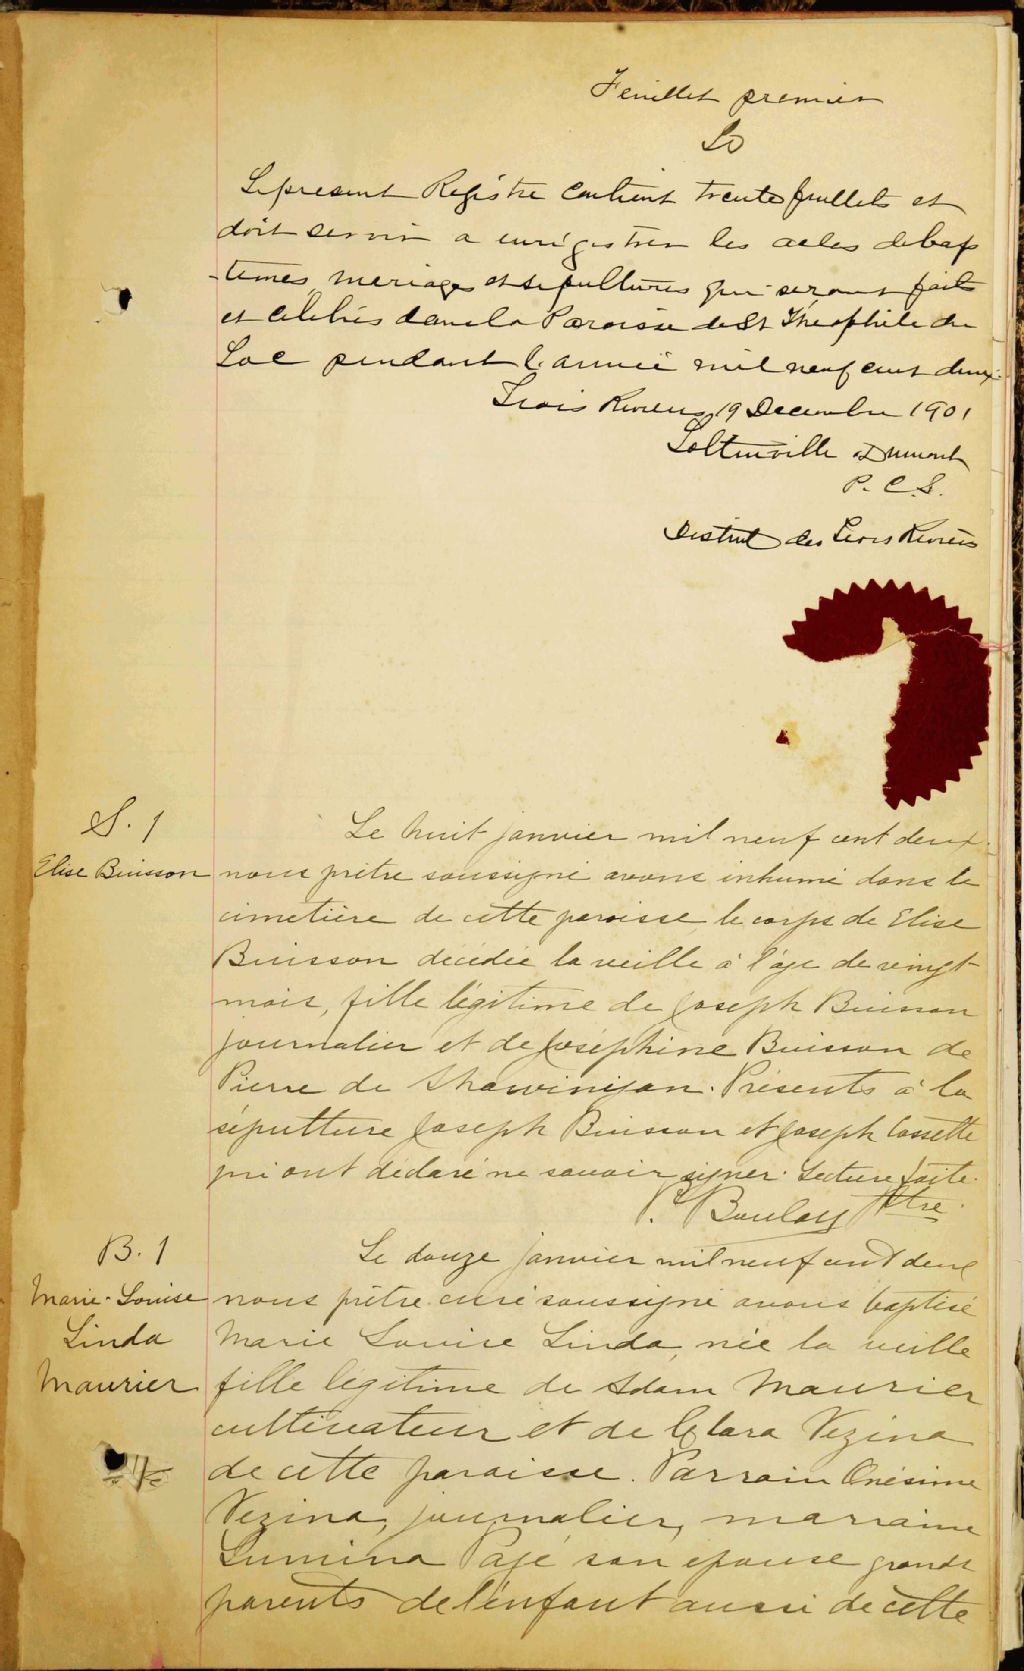 Feuillet premier
LD
Le present Registre contient trente feuillets et
doit servir a enrégistrer les actes de bap
-temes, mariages et sepultures qui seront faits
et célébrés dans la Paroisse de St Théophile du
Lac pendant l'année mil neuf cent deux.
Trois Rivieres, 19 Decembre 1901
Dumont
P. C. S.
District des Trois Rivieres
S. 1
Elise Buisson
Le huit janvier mil neuf cent deux
nous prêtre soussigné avons inhumé dans le
cimetière de cette paroisse le corps de Elise
Buisson décédée la veille à l'âge de vingt
mois, fille légitime de Joseph Buisson
journalier et de Joséphine Buisson de
Pierre de Shawinigan. Présents à la
sépulture Joseph Buisson et Joseph Cossette
qui ont déclaré ne savoir signer. Lecture faite.
P. Boulay Ptre.
B. 1
Marie-Louise
Linda
Maurier
Le douze janvier mil neuf cent deux
nous prêtre curé soussigné avons baptisé
Marie Louise Linda, née la veille
fille légitime de Adam Maurier
cultivateur et de Clara Vezina
de cette paroisse. Parrain Onésime
Vezina, journalier, marraine
Lumina Pagé son épouse grands
parents de l'enfant aussi de cette